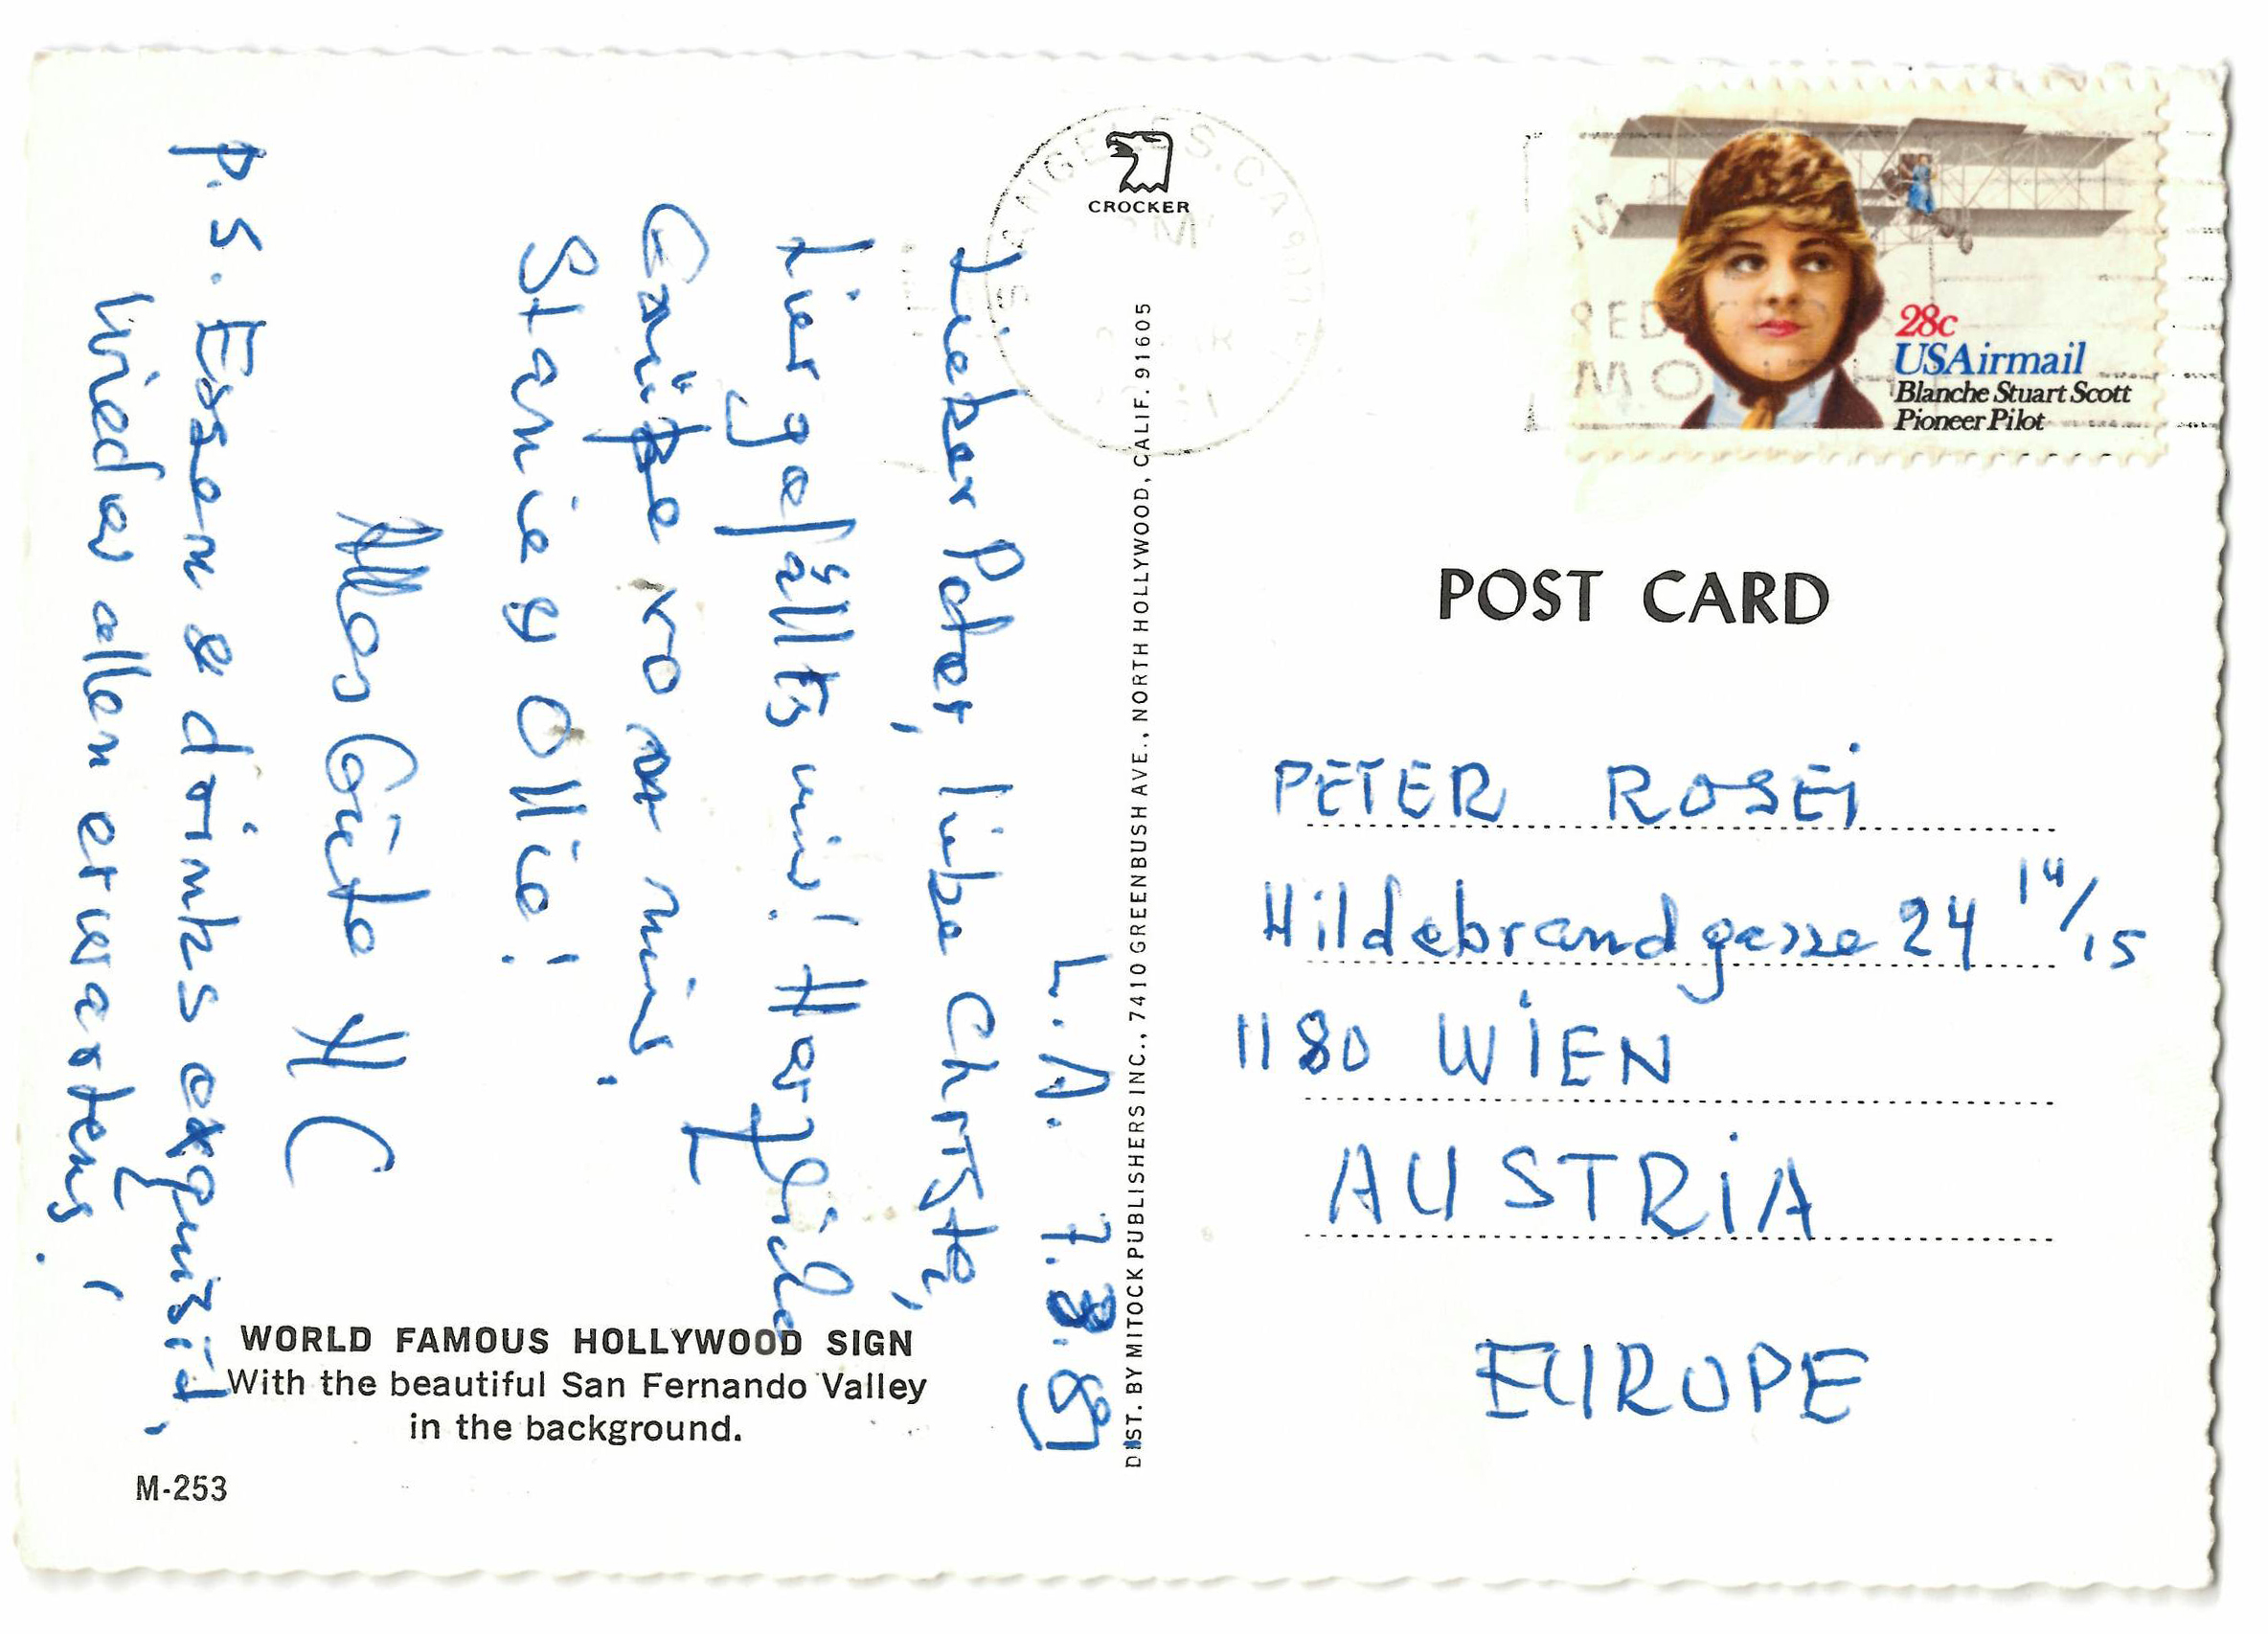 L.A. 7.3.81
Lieber Peter, liebe Christa,
hier gefällts mir! Herzliche
Grüße von mir.
Stanley Ollie!
Alles Gute H C
P.S. Essen & drinks exquisit,
wieder allen erwartens!
WORLD FAMOUS HOLLYWOOD SIGN
With the beautiful San Fernando Valley
in the background.
M-253
CROCKER
DIST. BY MITOCK PUBLISHERS INC., 7410 GREENBUSH AVE., NORTH HOLLYWOOD, CALIF. 91605
ANGELES, CA
28c
USAirmail
Blanche Stuart Scott
Pioneer Pilot
POST CARD
PETER ROSEI
Hildebrandgasse 24 14/15
1180 WIEN
AUSTRIA
EUROPE